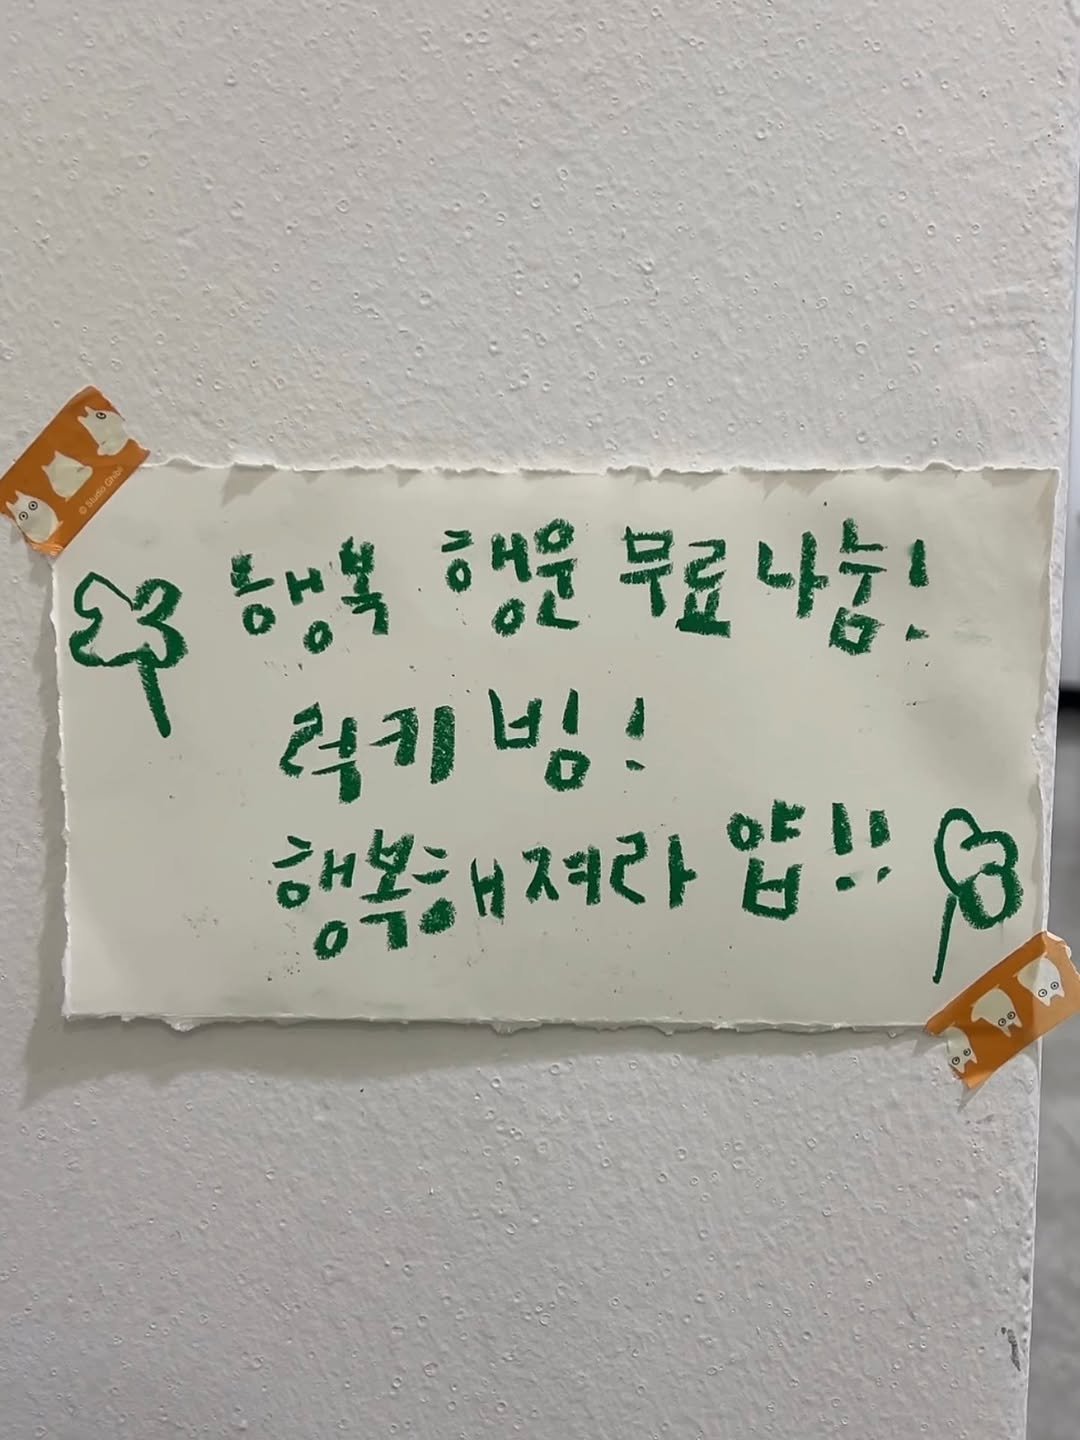 © Studio Ghibli
행복 행운 무료나눔!
럭키 빙!
행복해져라 얍!!